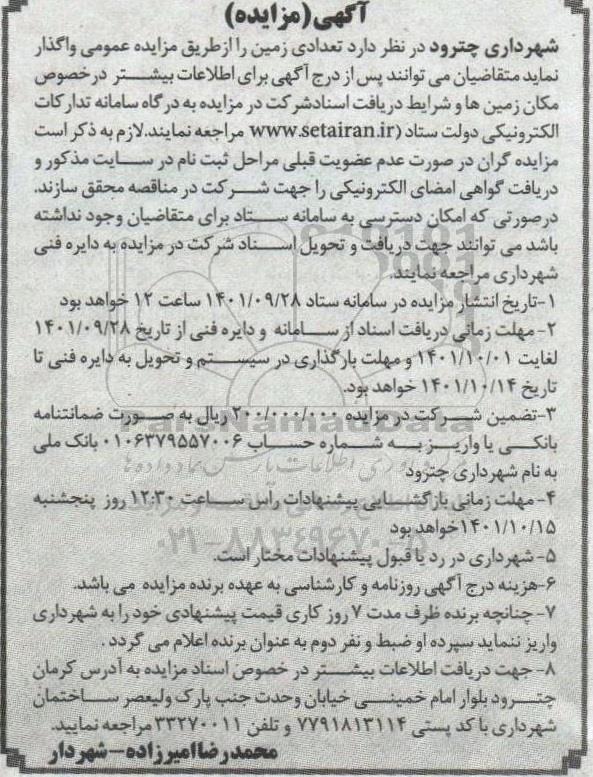 آگهی(مزایده)
شهرداری چترود در نظر دارد تعدادی زمین را ازطریق مزایده عمومی واگذار
نماید متقاضیان می توانند پس از درج آگهی برای اطلاعات بیشتر درخصوص
مکان زمین ها و شرایط دریافت اسنادشرکت در مزایده به درگاه سامانه تدارکات
الکترونیکی دولت ستاد (www.setairan.ir مراجعه نمایند.لازم به ذکر است
مزایده گران در صورت عدم عضویت قبلی مراحل ثبت نام در سایت مذکور و
دریافت گواهی امضای الکترونیکی را جهت شرکت در مناقصه محقق سازند.
درصورتی که امکان دسترسی به سامانه ستاد برای متقاضیان وجود نداشته
باشد می توانند جهت دریافت و تحویل اسناد شرکت در مزایده به دایره فنی
شهرداری مراجعه نمایند.
۱-تاریخ انتشار مزایده در سامانه ستاد ۱۴۰۱/۰۹/۲۸ ساعت ۱۲ خواهد بود
۲- مهلت زمانی دریافت اسناد از سامانه و دایره فنی از تاریخ ۱۴۰۱/۰۹/۲۸
لغایت ۱۴۰۱/۱۰/۰۱ و مهلت بارگذاری در سیستم و تحویل به دایره فنی تا
تاریخ ۱۴۰۱/۱۰/۱۴ خواهد بود.
۳-تضمین شرکت در مزایده ۲۰۰/۰۰۰/۰۰۰ ریال به صورت ضمانتنامه
بانکی یا واریز به شماره حساب ۰۱۰۶۳۷۹۵۵۷۰۰۶ بانک ملی
به نام شهرداری چترود
۴- مهلت زمانی بازگشایی پیشنهادات راس ساعت ۱۲:۳۰ روز پنجشنبه
۱۴۰۱/۱۰/۱۵خواهد بود
۵- شهرداری در رد یا قبول پیشنهادات مختار است.
۶-هزینه درج آگهی روزنامه و کارشناسی به عهده برنده مزایده می باشد.
۷- چنانچه برنده ظرف مدت ۷ روز کاری قیمت پیشنهادی خود را به شهرداری
واریز ننماید سپرده او ضبط و نفر دوم به عنوان برنده اعلام می گردد .
۸- جهت دریافت اطلاعات بیشتر در خصوص اسناد مزایده به آدرس کرمان
چترود بلوار امام خمینی خیابان وحدت جنب پارک ولیعصر ساختمان
شهرداری با کد پستی ۷۷۹۱۸۱۳۱۱۴ و تلفن ۳۳۲۷۰۰۱۱ مراجعه نمایید.
محمدرضاامیرزاده-شهردار
ParsNamadData
۰۲۱-۸۸۳۴۹۶۷۰-۵